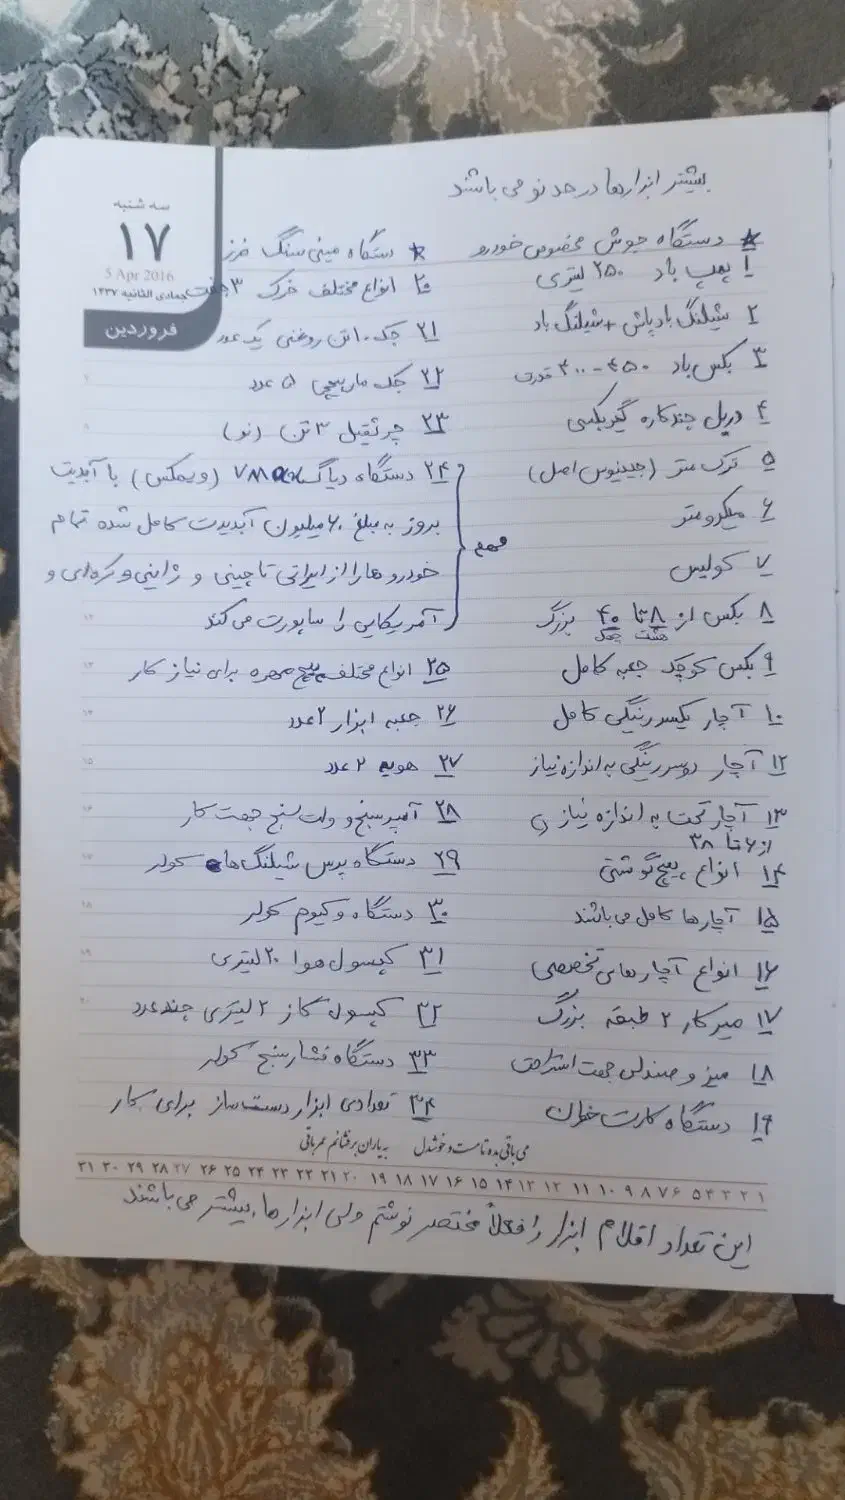 بیشتر ابزارها در حد نو می باشند
سه شنبه
۱۷
5 Apr 2016
جمادی الثانیه ۱۴۳۷
فروردین
* دستگاه جوش مخصوص خودرو
۱ پمپ باد ۲۵۰ لیتری
۲ شیلنگ بادپاش + شیلنگ باد
۳ بکس باد ۴۵۰-۴۰۰ قدرت
۴ دریل چندکاره گیربکسی
۵ ترک متر (جینیوس اصل)
۶ میکرومتر
۷ کولیس
۸ بکس از ۸ تا ۴۰ بزرگ
هشت چهل
۹ بکس کوچک جعبه کامل
۱۰ آچار یکسررینگی کامل
۱۲ آچار دوسررینگی به اندازه نیاز
۱۳ آچار تخت به اندازه نیاز
از ۶ تا ۳۸
۱۴ انواع پیچ گوشتی
۱۵ آچارها کامل می باشند
۱۶ انواع آچارهای تخصصی
۱۷ میز کار ۲ طبقه بزرگ
۱۸ میز و صندلی جهت استراحت
۱۹ دستگاه کارت خوان
* دستگاه مینی سنگ فرز
۲۰ انواع مختلف خرک ۳ جفت
۲۱ جک ۱۰ تن روغنی یک عدد
۲۲ جک مارپیچی ۵ عدد
۲۳ جرثقیل ۳ تن (نو)
۲۴ دستگاه دیاگ (ویمکس) با آبدیت
بروز به مبلغ ۶۰ میلیون آبدیت کامل شده تمام
خودروها را از ایرانی تا چینی و ژاپنی و کره ای و
آمریکایی را ساپورت می کند
مهم
۲۵ انواع مختلف پیچ مهره برای نیاز کار
۲۶ جعبه ابزار ۲ عدد
۲۷ هویه ۲ عدد
۲۸ آمپرسنج و ولت سنج جهت کار
۲۹ دستگاه پرس شیلنگ های کولر
۳۰ دستگاه وکیوم کولر
۳۱ کپسول هوا ۲۰ لیتری
۳۲ کپسول گاز ۲ لیتری چند عدد
۳۳ دستگاه فشارسنج کولر
۳۴ تعدادی ابزار دست ساز برای کار
می باقی بده تا مست و خوشدل به یاران برفشانم عمر باقی
۱ ۲ ۳ ۴ ۵ ۶ ۷ ۸ ۹ ۱۰ ۱۱ ۱۲ ۱۳ ۱۴ ۱۵ ۱۶ ۱۷ ۱۸ ۱۹ ۲۰ ۲۱ ۲۲ ۲۳ ۲۴ ۲۵ ۲۶ ۲۷ ۲۸ ۲۹ ۳۰ ۳۱
این تعداد اقلام ابزار را فعلاً مختصر نوشتم ولی ابزارها بیشتر می باشند